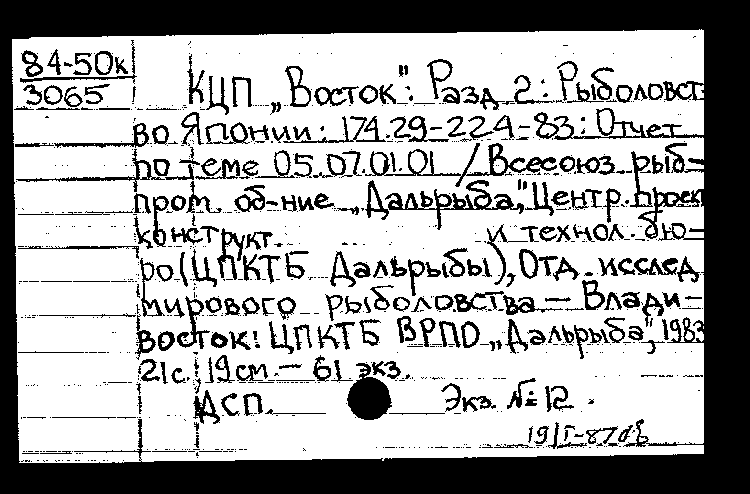 84-50к
3065
КЦП „Восток": Разд 2: Рыболовст
во Японии: 174.29-224-83: Отчет
по теме 05.07.01.01 / Всесоюз. рыб-
пром. об-ние „Дальрыба", Центр. проек
конструкт. и технол. бю-
ро (ЦПКТБ Дальрыбы), Отд. исслед.
мирового рыболовства — Влади-
восток: ЦПКТБ ВРПО „Дальрыба", 1983
21с. 19см. — 61 экз.
ДСП. Экз. № 12.